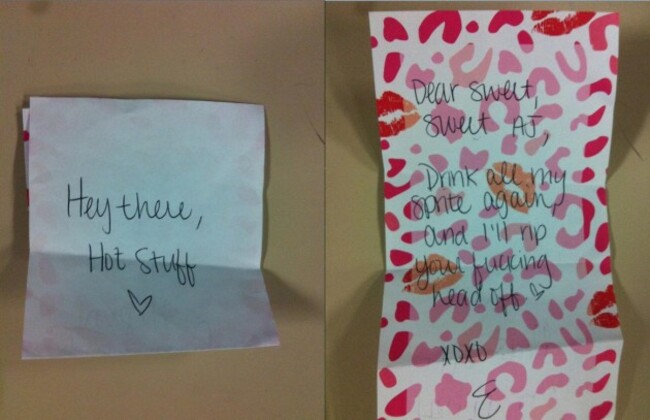 Hey there,
Hot Stuff
♡
Dear sweet,
sweet AJ,
Drink all my
sprite again,
and I'll rip
your fucking
head off ♡
XOXO
E